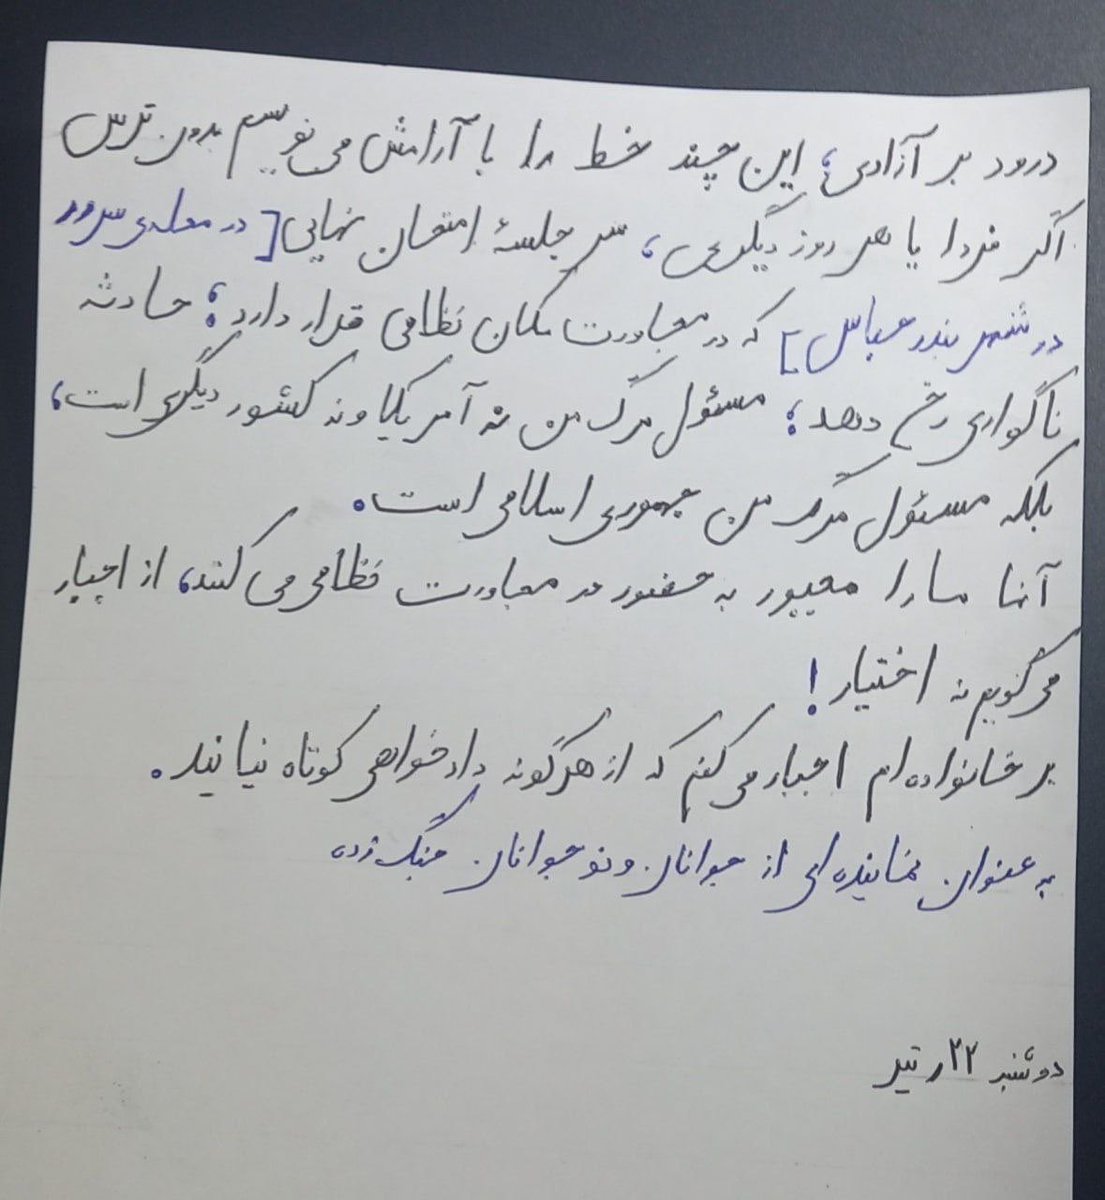 درود بر آزادی؛ این چند خط را با آرامش می‌نویسم بدون ترس
اگر فردا یا هر روز دیگری، سر جلسهٔ امتحان نهایی [در محله‌ی سرور
در شهر بندرعباس] که در مجاورت مکان نظامی قرار دارد؛ حادثه
ناگواری رخ دهد؛ مسئول مرگ من نه آمریکا و نه کشور دیگری است،
بلکه مسئول مرگ من جمهوری اسلامی است.
آنها ما را مجبور به حضور در مجاورت نظامی می‌کنند، از اجبار
می‌گویم نه اختیار!
بر خانواده‌ام اجبار می‌کنم که از هرگونه دادخواهی کوتاه نیایند.
به عنوان نماینده‌ای از جوانان و نوجوانان جنگ‌زده
دوشنبه ۲۲ تیر